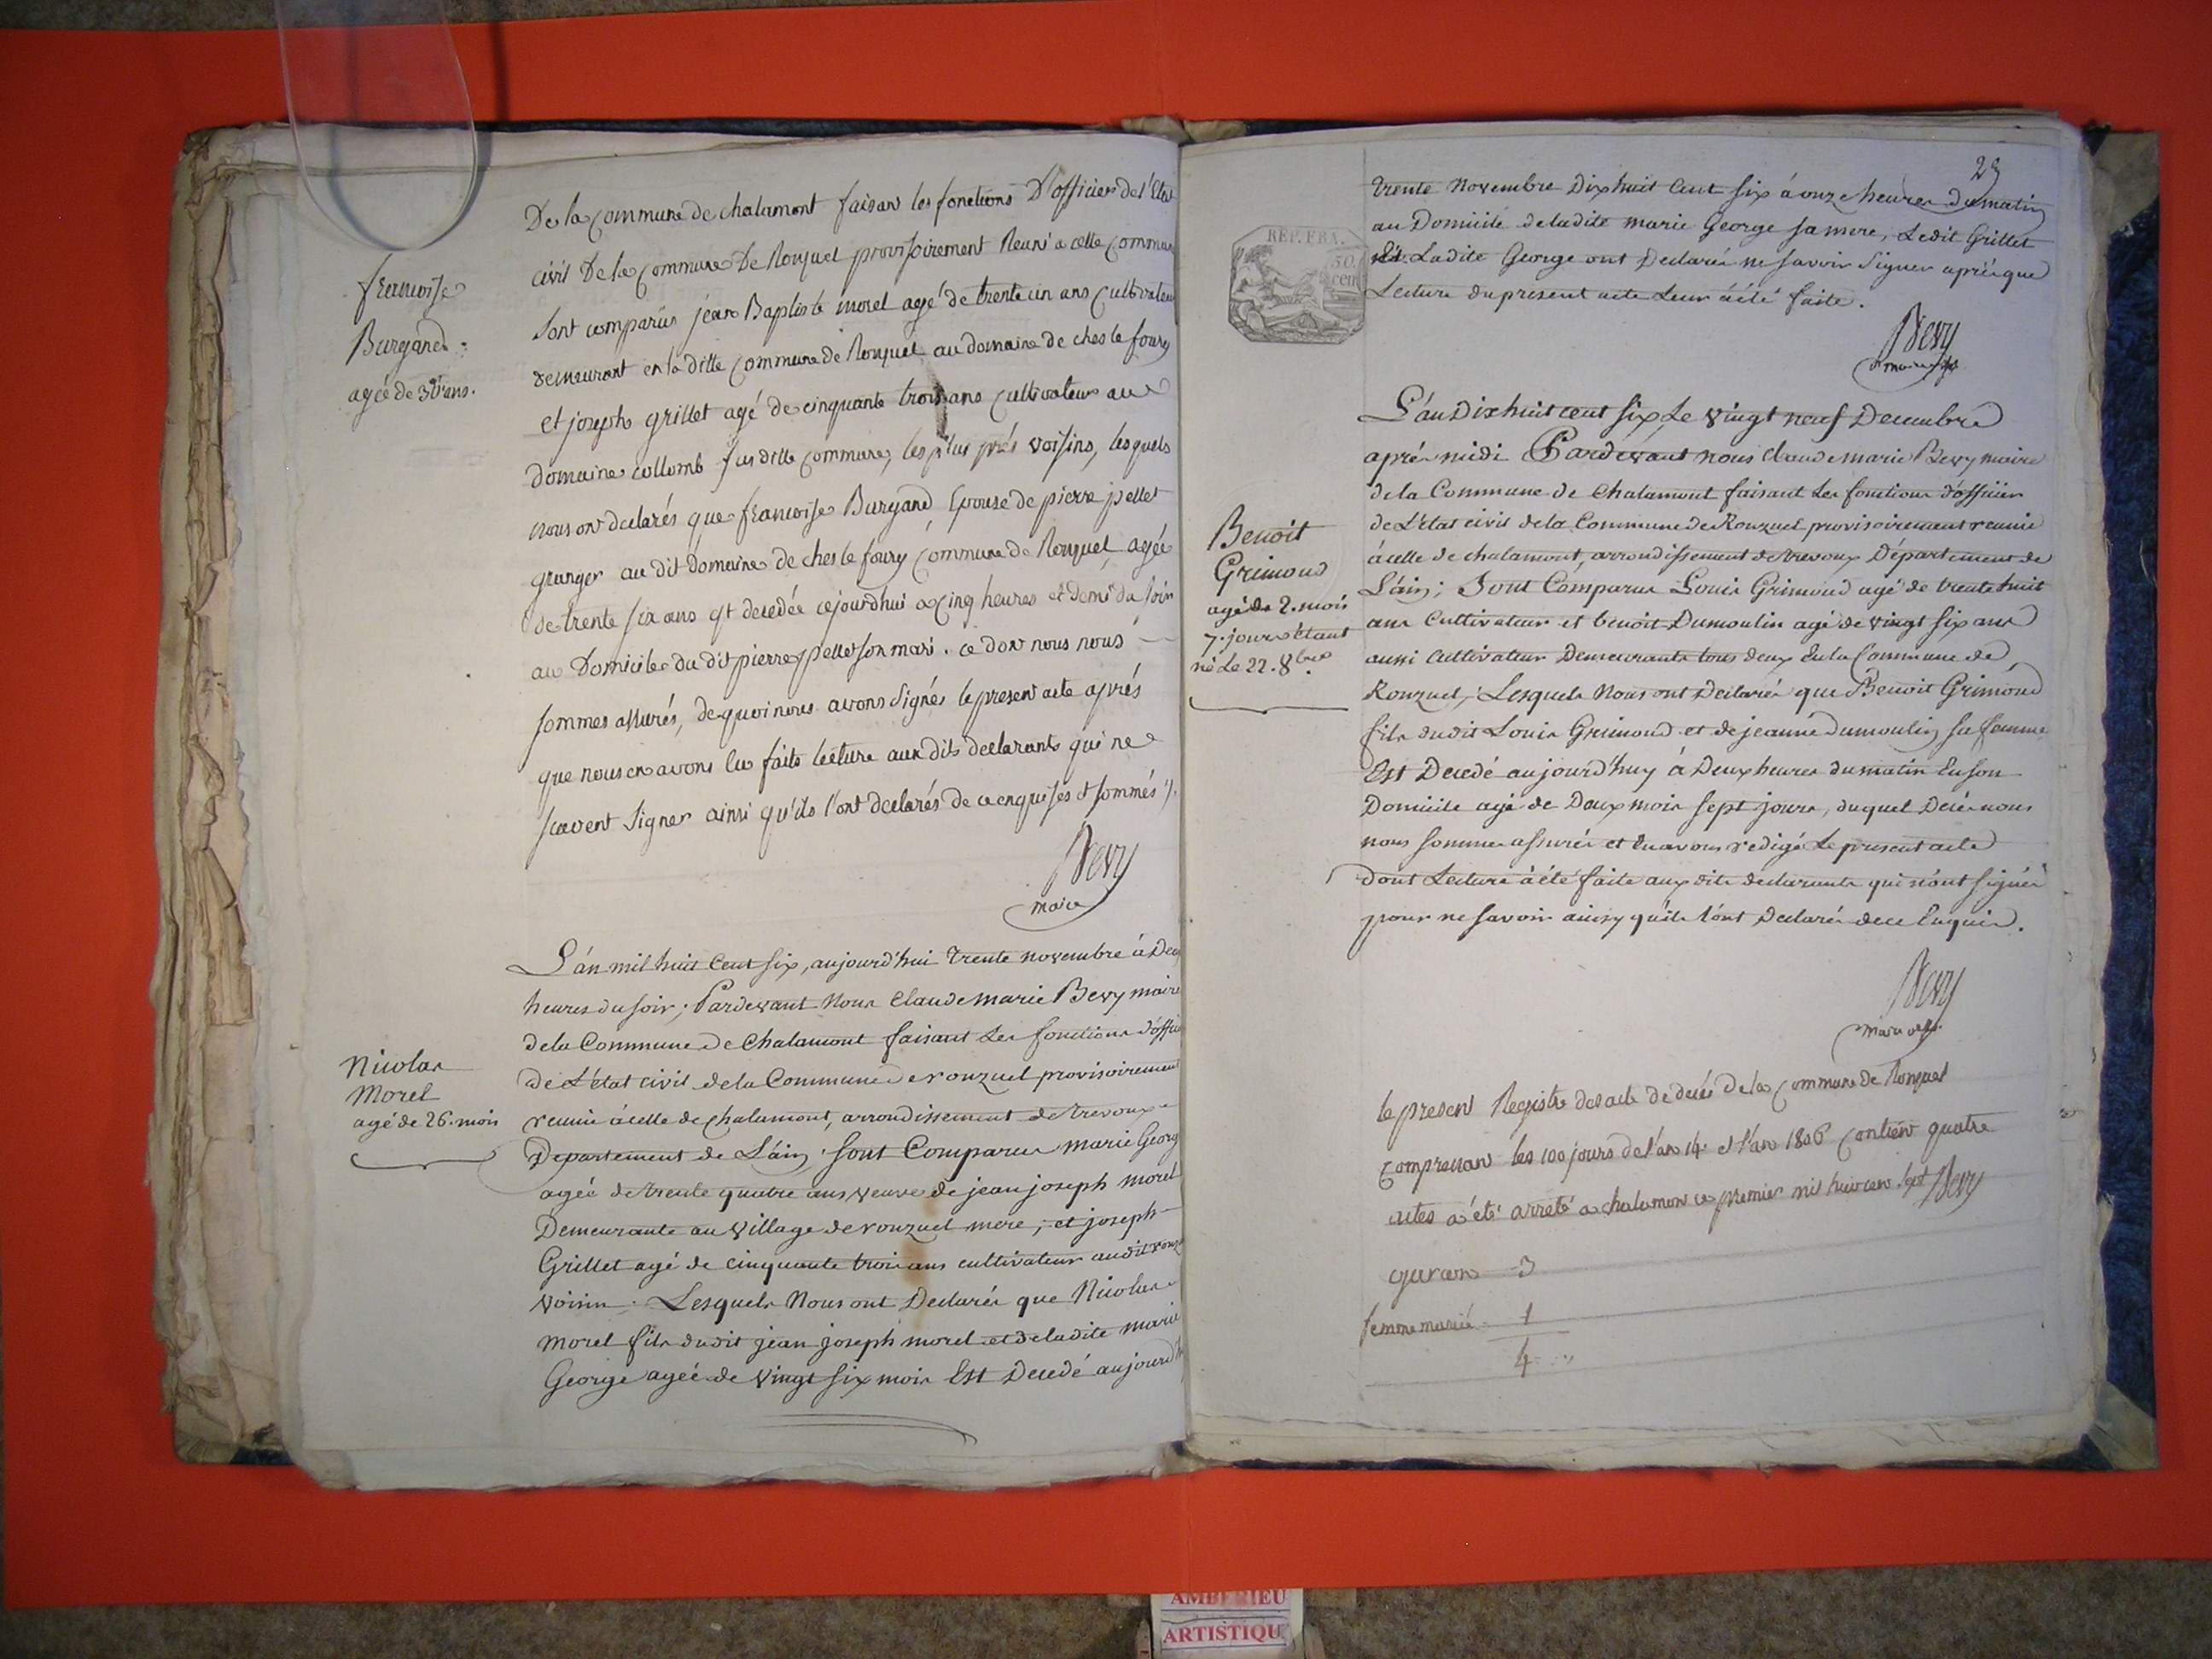 De la commune de chalamont faisant les fonctions D'officier de l'Etat
civil De la commune De Ronzuel provisoirement Reuni a cette commune
sont comparûs jean Baptiste morel agé de trente un ans cultivateur
demeurant en la ditte commune de Ronzuel au domaine de ches le foury
et joseph grillet agé de cinquante trois ans cultivateur au
domaine collomb susditte commune, les plus prés voisins, lesquels
nous ont declarés que francoise Burgand Epouse de pierre pellet
granger au dit domaine de ches le foury commune de Ronzuel, agée
de trente six ans est decedée cejourdhui a cinq heures et demi du soir
au Domicile du dit pierre pellet son mari. ce dont nous nous
sommes assurés, de quoi nous avons signés le present acte aprés
que nous en avons lu faits lecture aux dits declarants qui ne
scavent signer ainsi qu'ils l'ont declarés de ce enquises et sommés
Bevy
maire
francoise
Burgand
agée de 36 ans.
L'án mil huit Cent six, aujourd'hui trente novembre à Deux
heures du soir; Pardevant Nous Claude marie Bevy maire
de la Commune de Chalamont faisant les fonctions d'offic
de L'état civil de la Commune de ronzuel provisoirement
reunie à celle de chalamont, arrondissement de trevoux
Departement de L'áin; sont Comparus marie Georg
agée de trente quatre ans veuve de jean joseph morel
Demeurante au village de ronzuel mere; et joseph
Grillet agé de cinquante trois ans cultivateur audit ronz
voisin. Lesquels Nous ont Declarés que Nicolas
morel fils dudit jean joseph morel et de ladite marie
George agée de vingt six mois Est Decedé aujourd'h
Nicolas
Morel
agé de 26. mois
29
trente Novembre Dix huit Cent six à onze heures du matin
au Domicile de ladite marie George sa mere, Ledit Grillet
Ladite George ont Declarés ne savoir Signer aprés que
Lecture du present acte Leur à été faite.
Bevy
maire
REP. FRA.
50
cen
L'án Dix huit cent six Le vingt neuf Decembre
aprés midi Pardevant nous Claude marie Bevy maire
de la Commune de Chalamont faisant les fonctions d'officier
de L'état civil de la Commune de Ronzuel provisoirement reunie
à celle de chalamont, arrondissement de trevoux Département de
L'áin; Sont Comparus Louis Grimoud agé de trente huit
ans Cultivateur et benoit Dumoulin agé de vingt six ans
aussi Cultivateur Demeurants tous deux En la Commune de
Ronzuel, Lesquels Nous ont Declarés que Benoit Grimoud
fils dudit Louis Grimoud et de jeanne dumoulin sa femme
Est Decedé aujourd'huy à Deux heures du matin En son
Domicile agé de Deux mois sept jours, duquel Décés nous
nous sommes assurés et En avons rédigé Le present acte
dont Lecture à été faite aux dits declarants qui n'ont signés
pour ne savoir ainsy qu'ils l'ont Declarés de ce Enquis.
Bevy
maire
Benoit
Grimoud
agé de 2. mois
7. jours étant
né Le 22. 8bre.
le present Registre des acte de decés De la commune de Ronzuel
comprenant les 100 jours de l'an 14. et l'an 1806 contient quatre
actes a été arreté a chalamont ce premier mil huit cent sept Bevy
garcons 3
femme mariée 1
4
AMB
IEU
ARTISTIQU